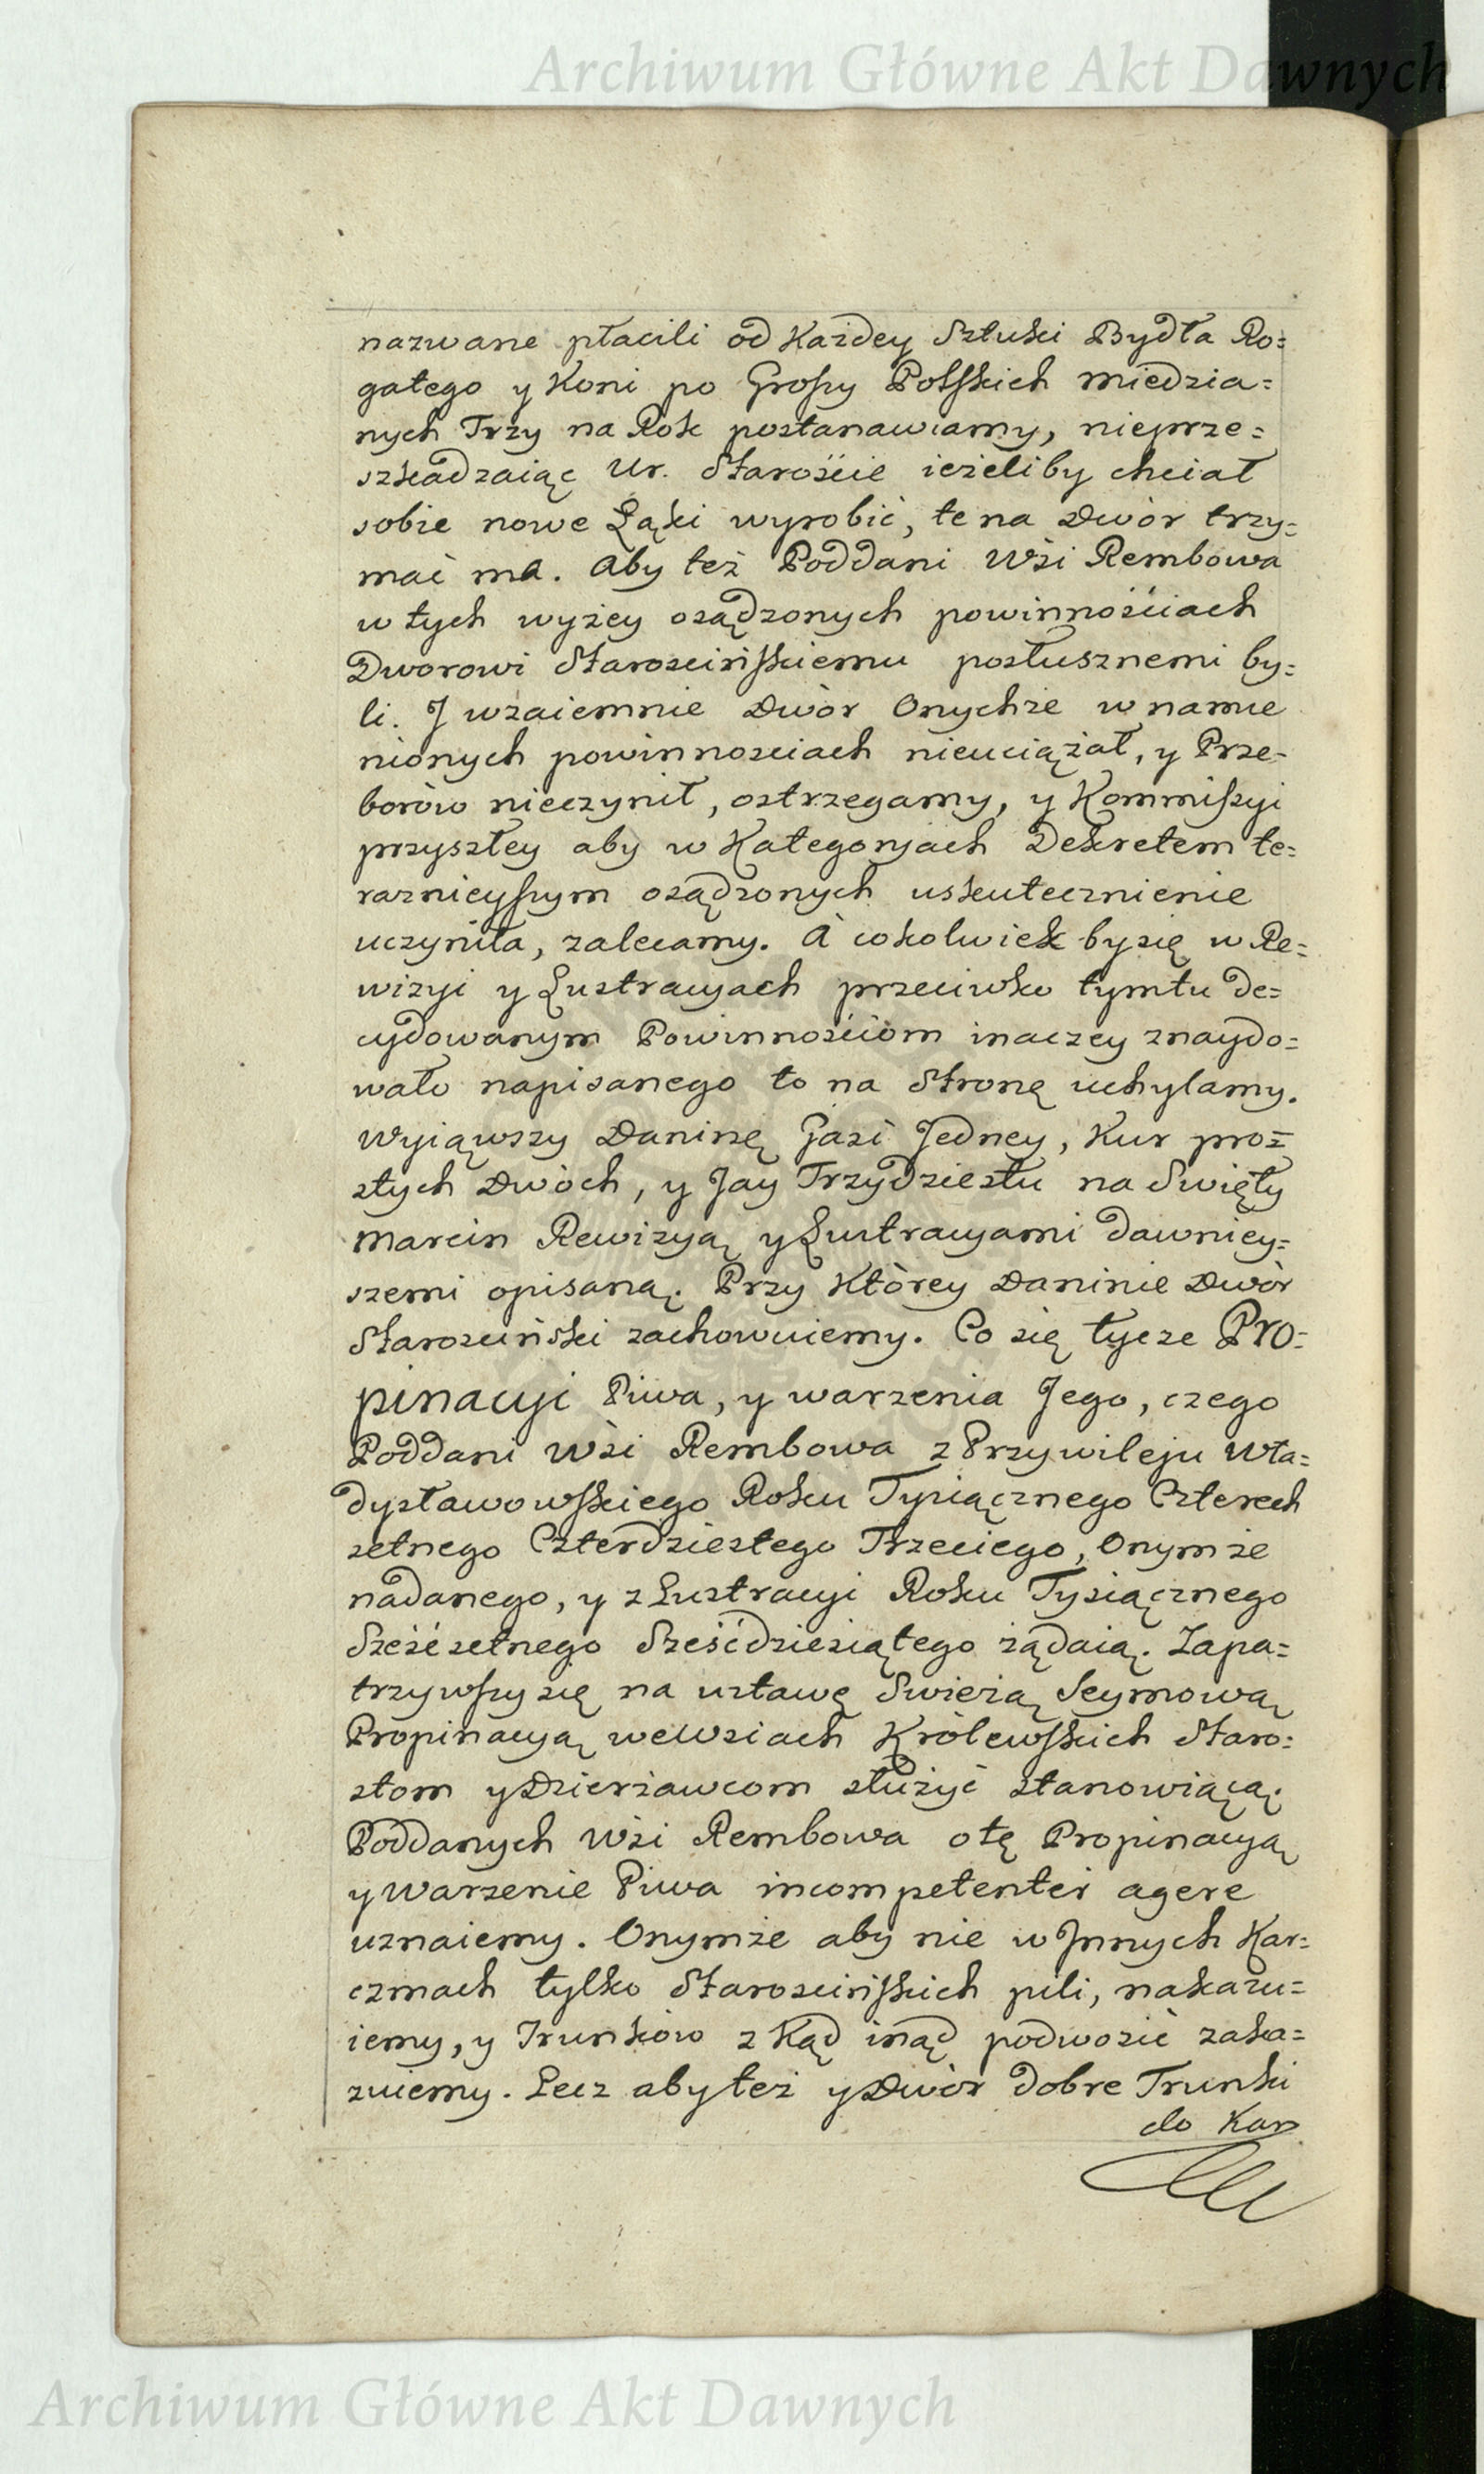 Archiwum Główne Akt Dawnych
nazwane płacili od Każdey Sztuki Bydła Ro=
gatego y Koni po Groszy Polskich miedzia=
nych Trzy na Rok postanawiamy, nieprze=
szkadzaiąc Ur. Staroście ieżeliby chciał
sobie nowe Łąki wyrobić, te na Dwór trzy=
mać ma. Aby też Poddani Wśi Rembowa
w tych wyżey osądzonych powinnościach
Dworowi Starościńskiemu posłusznemi by=
li. J wzaiemnie Dwór Onychże w namie
nionych powinnosciach nieuciążał, y Prze=
borów nieczynił, ostrzegamy, y Kommiszyi
przyszłey aby w Kategoryach Dekretem te=
raznieyszym osądzonych uskutecznienie
uczyniła, zalecamy. A cokolwiek by się w Re=
wizyi y Lustracyach przeciwko tymtu de=
cydowanym Powinnościom inaczey znaydo=
wało napisanego to na Stronę uchylamy.
Wyiąwszy Daninę Gęsi Jedney, Kur pros=
stych Dwóch, y Jay Trzydziestu na Swięty
Marcin Rewizyą y Lustracyami dawniey=
szemi opisaną. Przy Którey Daninie Dwór
Starosciński zachowuiemy. Co się tycze Pro=
pinacyi Piwa, y warzenia Jego, czego
Poddani Wśi Rembowa z Przywileju Wła=
dysławowskiego Roku Tysiącznego Czterech
setnego Czterdziestego Trzeciego, Onymże
nadanego, y z Lustracyi Roku Tysiącznego
Sześćsetnego Sześćdziesiątego żądaią. Zapa=
trzywszy się na ustawę Swieżą Seymową
Propinacyą we Wsiach Królewskich Staro=
stom y Dzierżawcom służyć stanowiącą.
Poddanych Wśi Rembowa o tę Propinacyą
y Warzenie Piwa incompetenter agere
uznaiemy. Onymże aby nie w Jnnych Kar=
czmach tylko Starościńskich pili, nakazu=
iemy, y Trunków z Kąd inąd podwozić zaka=
zuiemy. Lecz aby też y Dwór dobre Trunki
do Kar
Archiwum Główne Akt Dawnych